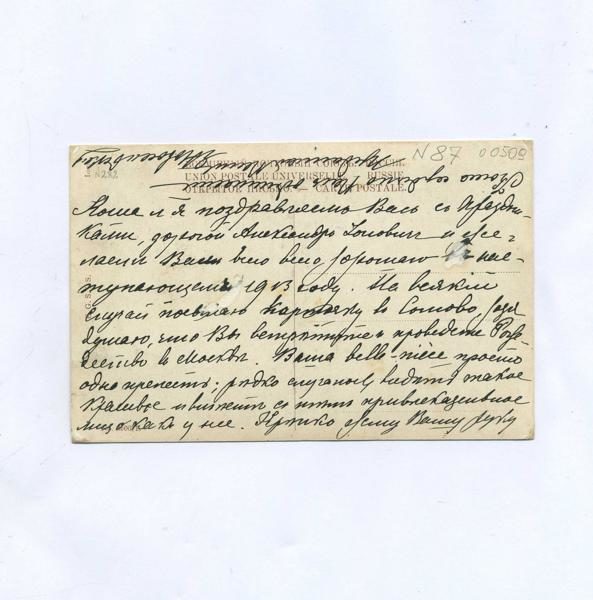 N 87
00509
N282
UNION POSTALE UNIVERSELLE. RUSSIE
ОТКРЫТОЕ ПИСЬМО. — CARTE POSTALE.
и я поздравляемъ Васъ съ праздни-
ками, дорогой Александръ и же-
лаемъ Вамъ всего всего хорошаго въ нас-
тупающемъ 1913 году. На всякій
случай посылаю карточку въ Сомово, хотя
думаю, что Вы встрѣтите и проведете Рож-
дество въ Москвѣ. Ваша belle-nièce просто
одна прелесть; рѣдко случалось видѣть такое
красивое и вмѣстѣ съ тѣмъ привлекательное
лицо какъ у нее. Крѣпко жму Вашу руку